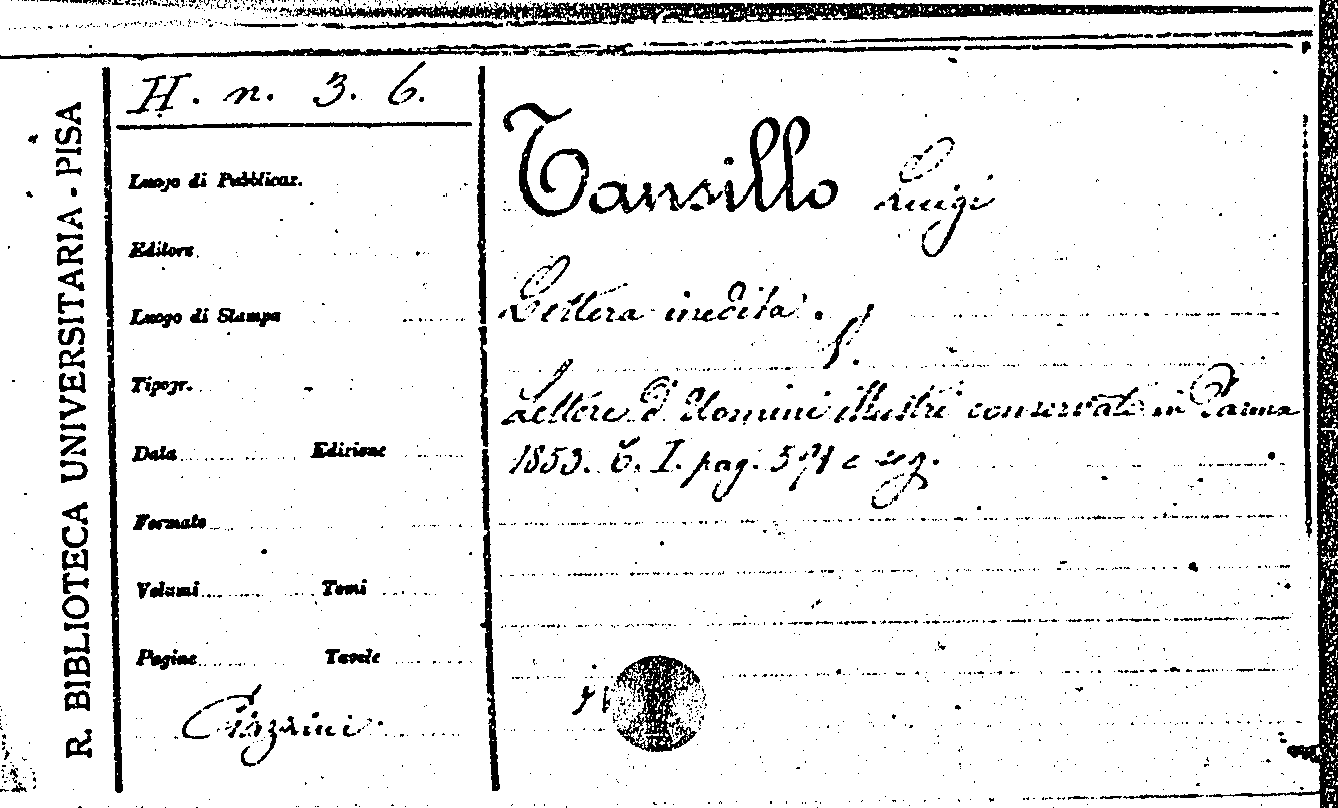 R. BIBLIOTECA UNIVERSITARIA - PISA
H. n. 3. 6.
Luogo di Pubblicaz.
Editore
Luogo di Stampa
Tipogr.
Data Edizione
Formato
Volumi Tomi
Pagine Tavole
Tansillo Luigi
Lettera inedita.
Lettere d'Uomini illustri conservate in Parma
1853. T. I. pag. 571 e seg.